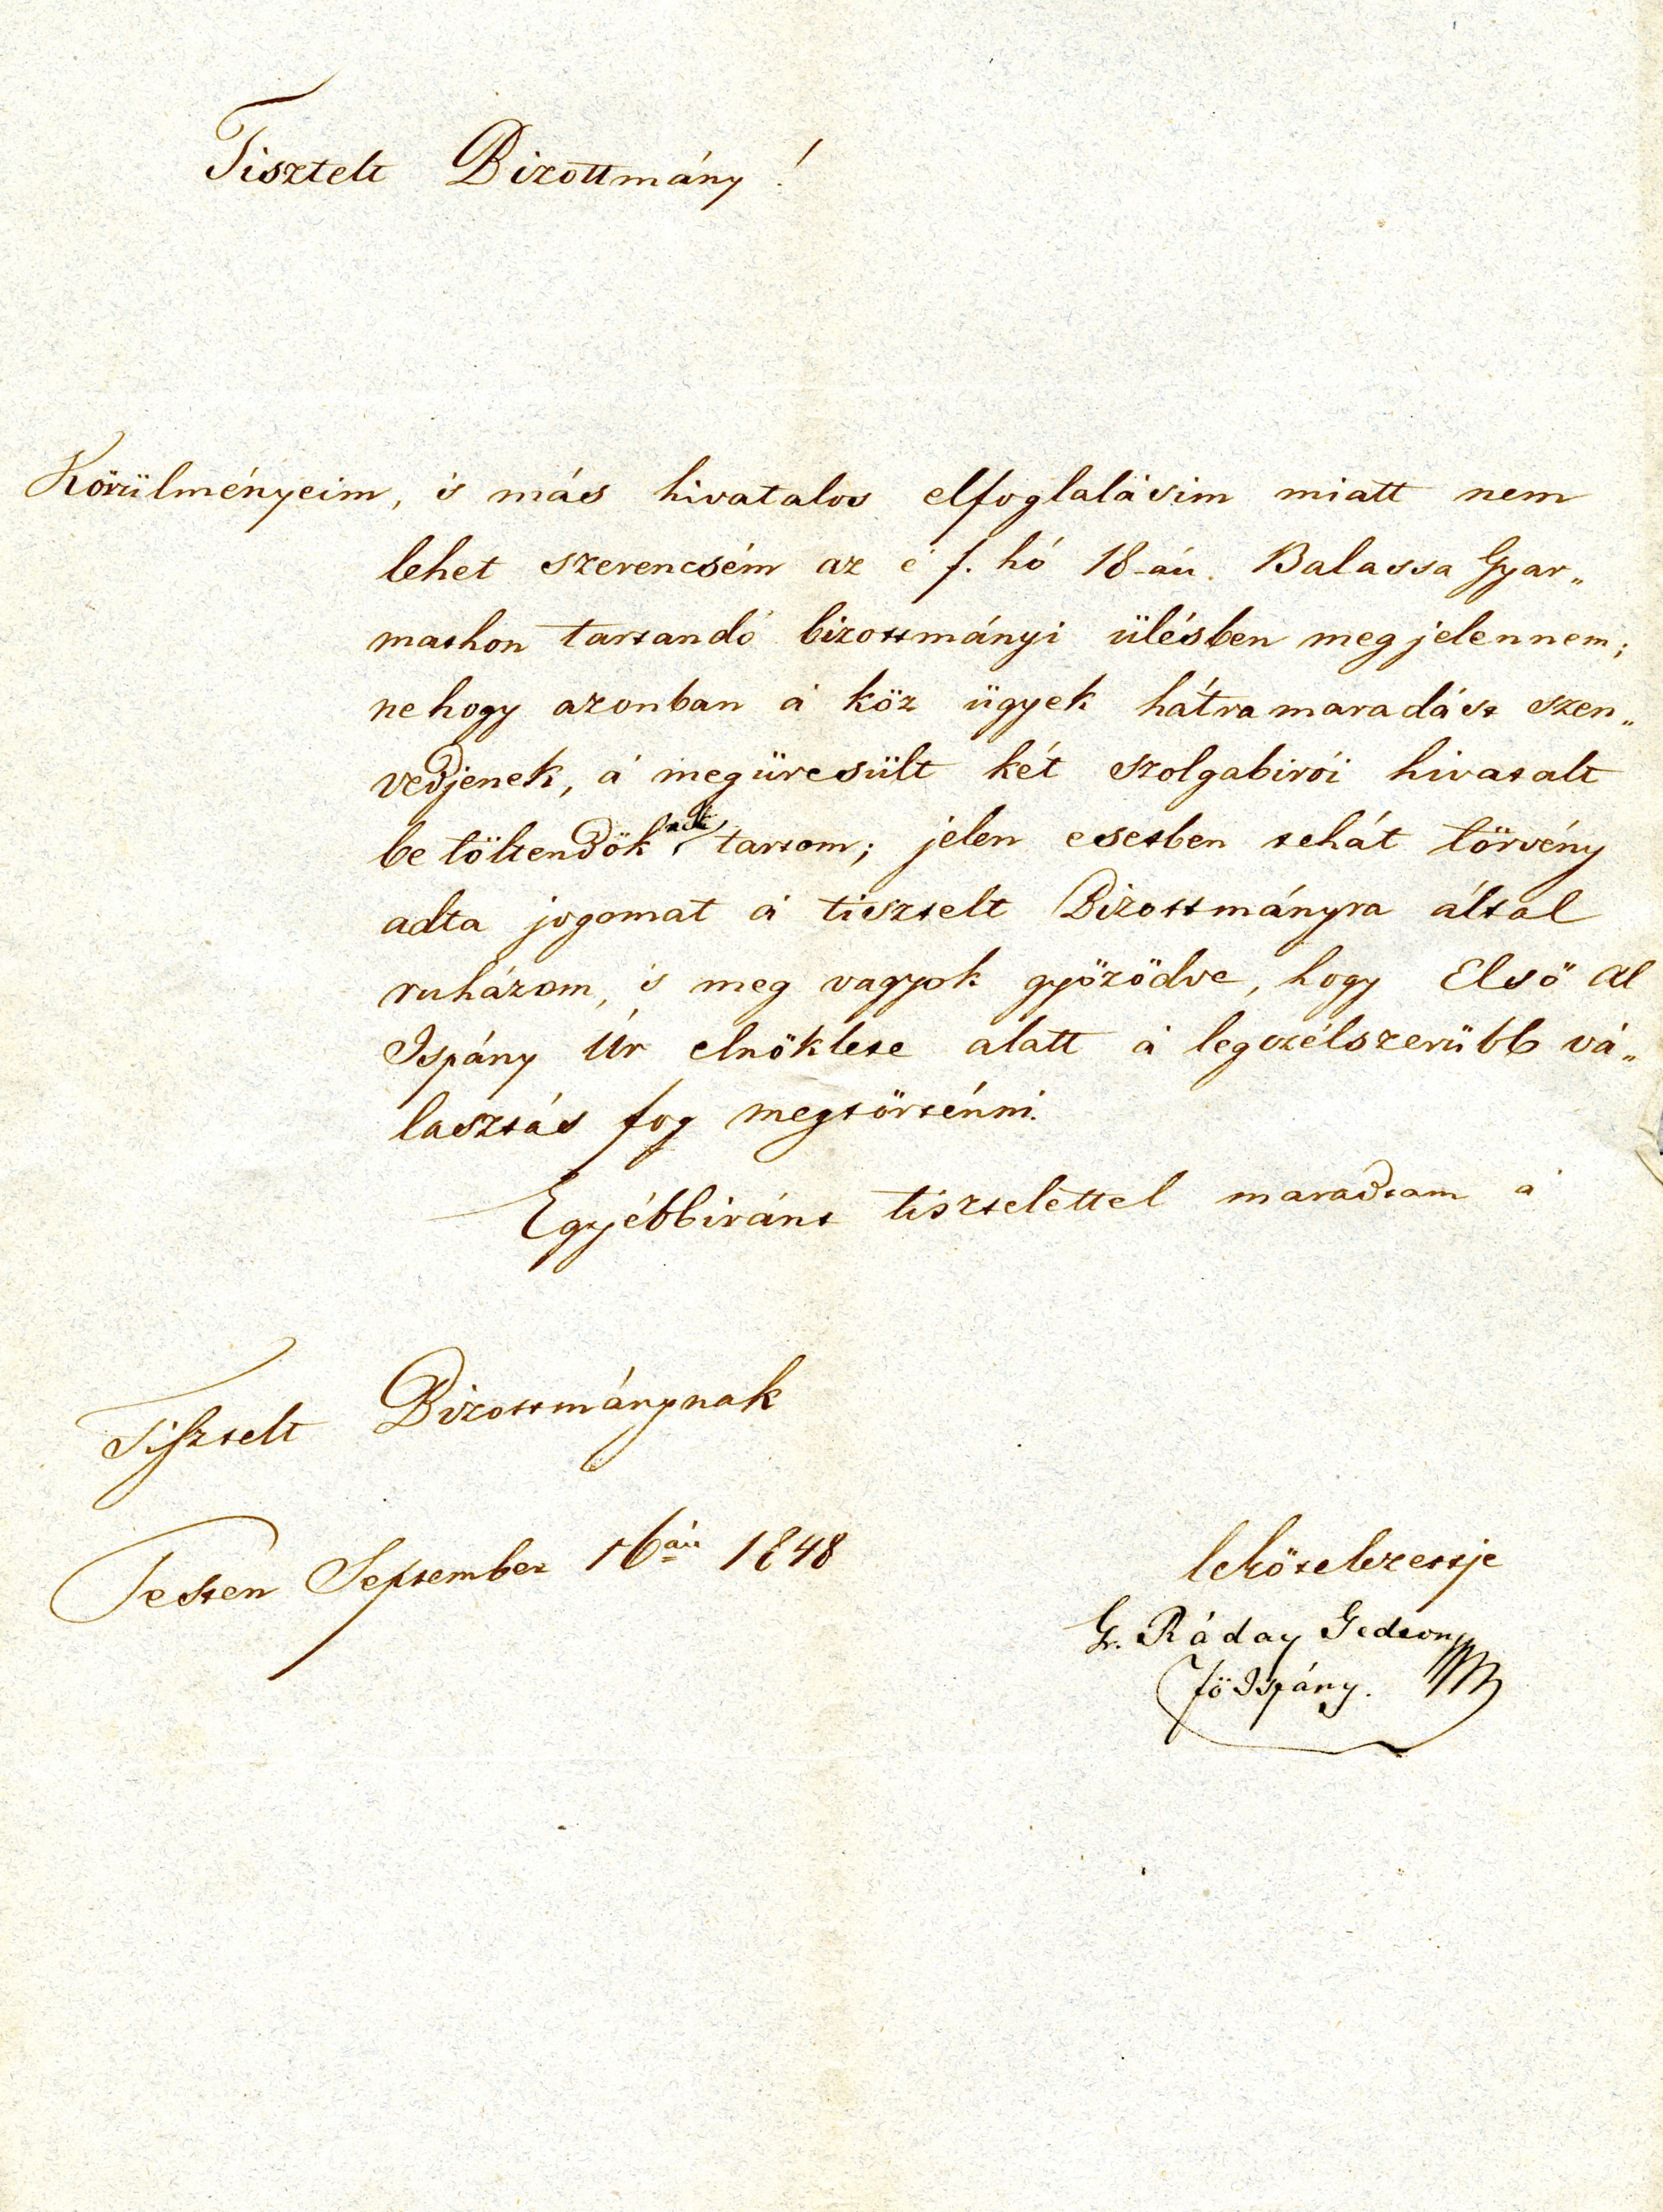 Tisztelt Bizottmány!
Körülményeim, és más hivatalos elfoglalásim miatt nem
lehet szerencsém az e f. hó 18-án. Balassa Gyar„
mathon tartandó bizottmányi ülésben megjelennem;
nehogy azonban a' köz ügyek hátramaradást szen„
vedjenek, a' megüresült két szolgabirói hivatalt
betöltendőknek tartom; jelen esetben tehát törvény
adta jogomat a' tisztelt Bizottmányra által
ruházom, és meg vagyok győződve, hogy Első Al
Ispány Úr elnöklete alatt a' legczélszerübb vá„
lasztás fog megtörténni.
Egyébbiránt tisztelettel maradtam a'
Tisztelt Bizottmánynak
Pesten September 16án 1848
lekötelezettje
Gr. Ráday Gedeon
fő Ispány.